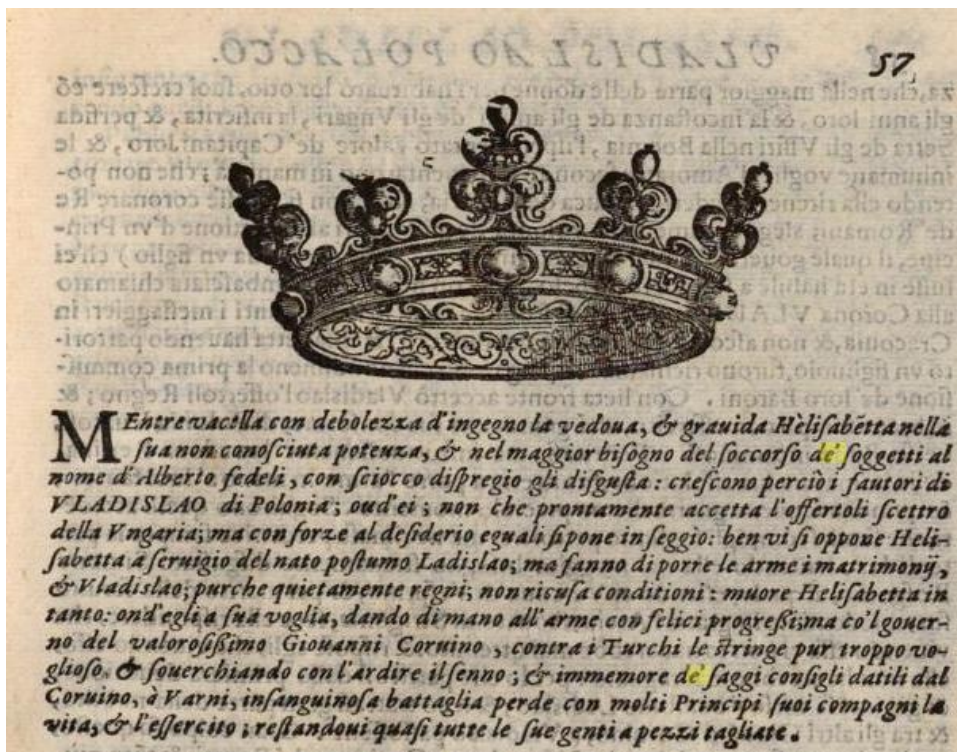 57
MEntre vacilla con debolezza d'ingegno la vedoua, & grauida Hèlisabētta nella
sua non conosciuta potenza, & nel maggior bisogno del soccorso de' soggetti al
nome d'Alberto fedeli, con sciocco dispregio gli disgusta: crescono perciò i fautori di
VLADISLAO di Polonia; ond'ei; non che prontamente accetta l'offertoli scettro
della Vngaria; ma con forze al desiderio eguali si pone in seggio: ben vi si oppone Heli-
sabetta a seruigio del nato postumo Ladislao; ma fanno di porre le arme i matrimonij,
& Vladislao; purche quietamente regni; non ricusa conditioni: muore Helisabetta in
tanto: ond'egli a sua voglia, dando di mano all'arme con felici progressi; ma co'l gouer-
no del valorosissimo Giouanni Coruino, contra i Turchi le stringe pur troppo vo-
glioso. & souerchiando con l'ardire il senno; & immemore de' saggi consigli datili dal
Coruino, à Varni, insanguinosa battaglia perde con molti Principi suoi compagni la
vita, & l'essercito; restandoui quasi tutte le sue genti a pezzi tagliate.